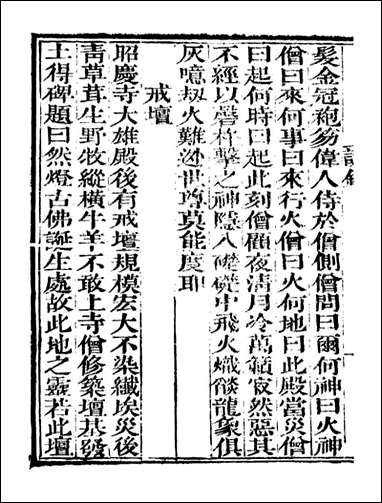 髮金冠絢笏偉人侍於僧側僧問曰爾何神曰火神
僧曰來何事曰來行火僧曰火何地曰此殿當災僧
曰起何時曰起此刻僧顧夜清月冷萬籟寂然惡其
不經以磬杵擊之神隱入礎礎中飛火熾燄龍象俱
灰噫刼火難逃世尊莫能度耶
戒壇
昭慶寺大雄殿後有戒壇規模宏大不染纖埃災後
青草茸生野牧縱橫牛羊不敢上寺僧修築壇基發
土得碑題曰然燈古佛誕生處故此地之靈若此壇